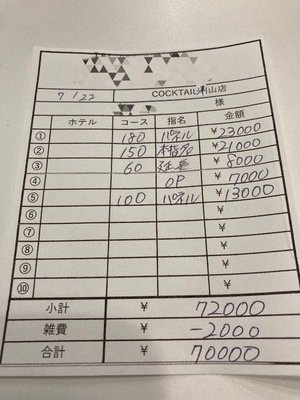 7/22 COCKTAIL津山店
様
ホテル コース 指名 金額
① 180 パネル ¥23000
② 150 本指名 ¥21000
③ 60 延長 ¥8000
④ OP ¥7000
⑤ 100 パネル ¥13000
⑥ ¥
⑦ ¥
⑧ ¥
⑨ ¥
⑩ ¥
小計 ¥ 72000
雑費 ¥ -2000
合計 ¥ 70000